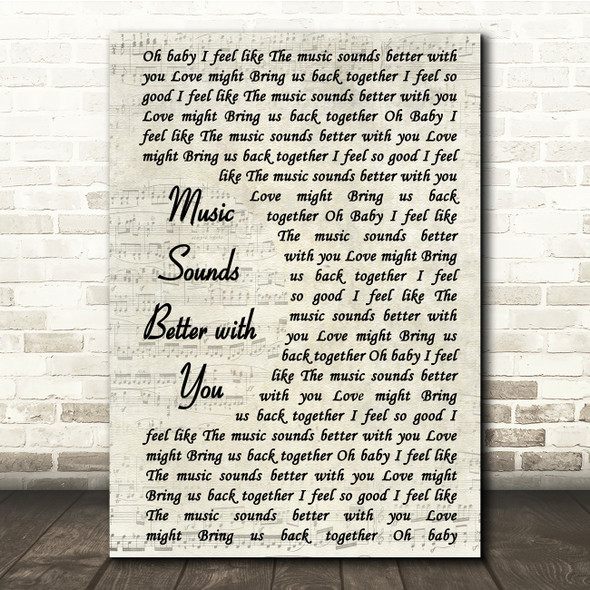 Oh baby I feel like The music sounds better with
you Love might Bring us back together I feel so
good I feel like The music sounds better with you
Love might Bring us back together Oh Baby I
feel like The music sounds better with you Love
might Bring us back together I feel so good I feel
like The music sounds better with you
Love might Bring us back
together Oh Baby I feel like
The music sounds better
with you Love might Bring
us back together I feel
so good I feel like The
music sounds better with
you Love might Bring us
back together Oh baby I feel
like The music sounds better
with you Love might Bring
us back together I feel so good I
feel like The music sounds better with you Love
might Bring us back together Oh baby I feel like
The music sounds better with you Love might
Bring us back together I feel so good I feel like
The music sounds better with you Love
might Bring us back together Oh baby
Music
Sounds
Better with
You